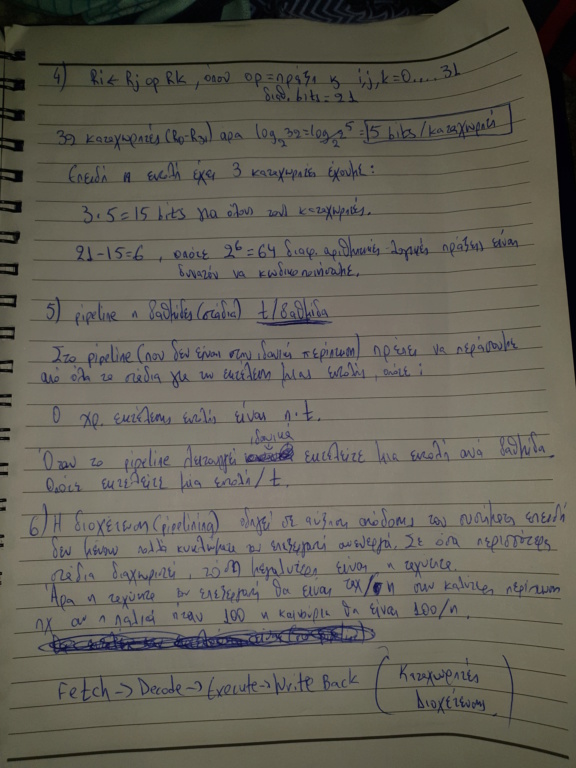 4) Ri ← Rj op Rk, όπου op = πράξη ς i,j,k = 0....31
διαθ. bits = 21
32 καταχωρητές (R0-R31) αρα log₂32 = log₂2⁵ = 5 bits/καταχωρητή
Επειδή η εντολή έχει 3 καταχωρητές έχουμε:
3·5 = 15 bits για όλους τους καταχωρητές.
21-15=6, οπότε 2⁶ = 64 διαφ. αριθμητικές λογικές πράξεις είναι
δυνατόν να κωδικοποιήσουμε.
5) pipeline n βαθμίδες (στάδια) t/βαθμίδα
Στο pipeline (που δεν είναι στην ιδανική περίπτωση) πρέπει να περάσουμε
από όλα τα στάδια για την εκτέλεση μιας εντολής, οπότε:
Ο χρ. εκτέλεσης εντολής είναι n·t.
Όταν το pipeline λειτουργεί ιδανικά εκτελείτε μια εντολή ανά βαθμίδα.
Οπότε εκτελείτε μια εντολή/t.
6) Η διοχέτευση (pipelining) οδηγεί σε αύξηση απόδοσης του συστήματος επειδή
δεν μένουν πολλά κυκλώματα του επεξεργαστή ανενεργά. Σε όσα περισσότερα
στάδια διαχωριστεί, τόση μεγαλύτερη είναι η ταχύτητα.
Άρα η ταχύτητα του επεξεργαστή θα είναι ταχ/n στην καλύτερη περίπτωση
πχ αν η παλιά ήταν 100 η καινούρια θα είναι 100/n.
Fetch → Decode → Execute → Write Back (Καταχωρητές
Διοχέτευσης)